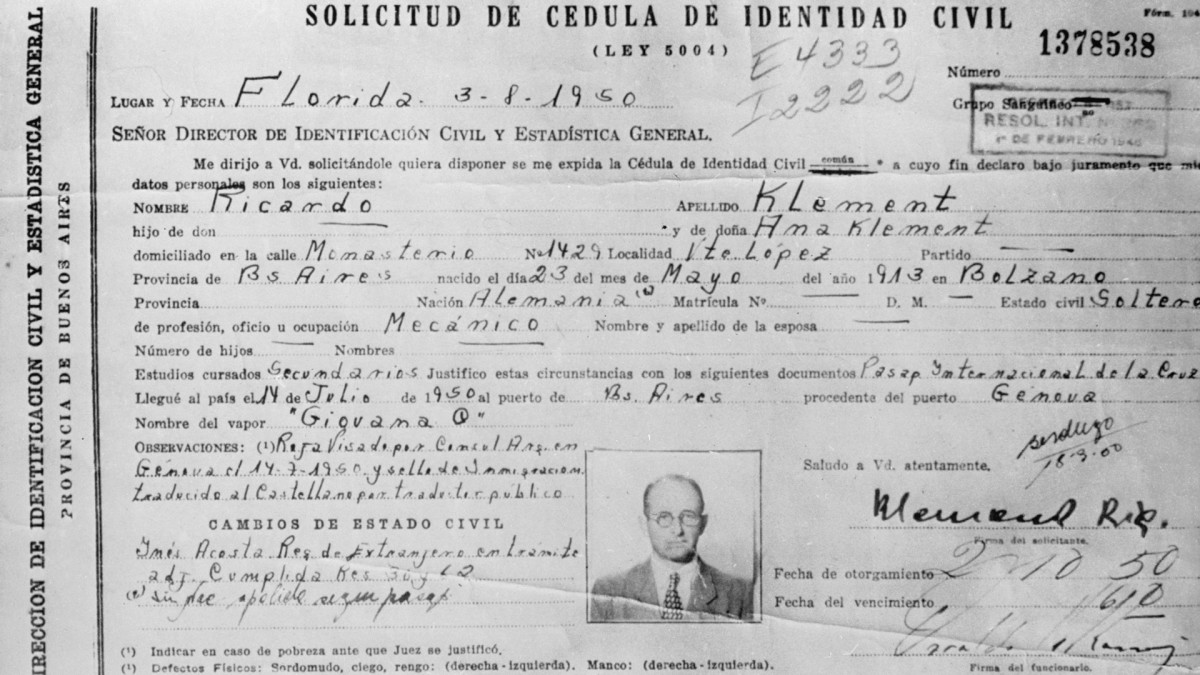 DIRECCION DE IDENTIFICACION CIVIL Y ESTADISTICA GENERAL
PROVINCIA DE BUENOS AIRES
SOLICITUD DE CEDULA DE IDENTIDAD CIVIL
Fórm. 104
(LEY 5004)
E 4333
1378538
I 2222
Número
LUGAR Y FECHA Florida. 3-8-1950
Grupo Sanguíneo
RESOL. INT. Nº
1º DE FEBRERO 1946
SEÑOR DIRECTOR DE IDENTIFICACIÓN CIVIL Y ESTADÍSTICA GENERAL.
Me dirijo a Vd. solicitándole quiera disponer se me expida la Cédula de Identidad Civil común * a cuyo fin declaro bajo juramento que mis
datos personales son los siguientes:
NOMBRE Ricardo APELLIDO Klement
hijo de don y de doña Ana Klement
domiciliado en la calle Monasterio Nº 1429 Localidad Vte López Partido
Provincia de Bs Aires nacido el día 23 del mes de Mayo del año 1913 en Bolzano
Provincia Nación Alemania (1) Matrícula Nº D. M. Estado civil Soltero
de profesión, oficio u ocupación Mecánico Nombre y apellido de la esposa
Número de hijos Nombres
Estudios cursados Secundarios Justifico estas circunstancias con los siguientes documentos Pasap Internacional de la Cruz
Llegué al país el 14 de Julio de 1950 al puerto de Bs. Aires procedente del puerto Génova
Nombre del vapor "Giovana C"
OBSERVACIONES: (1) Roja Visado por Consul Arg. en
Génova el 14-7-1950 y sello de Inmigracion
traducido al Castellano por traductor público
Saludo a Vd. atentamente.
CAMBIOS DE ESTADO CIVIL
Klement Ric.
Firma del solicitante.
Inés Acosta Reg. de Extranjero en trámite
adj. Cumplida Res 30 y 62
Fecha de otorgamiento 2 10 50
Fecha del vencimiento
(1) Indicar en caso de pobreza ante que Juez se justificó.
(1) Defectos Físicos: Sordomudo, ciego, rengo: (derecha-izquierda). Manco: (derecha-izquierda).
Firma del funcionario.